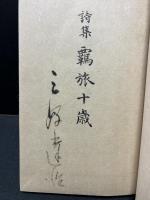 詩集 覊旅十歳
三好達治